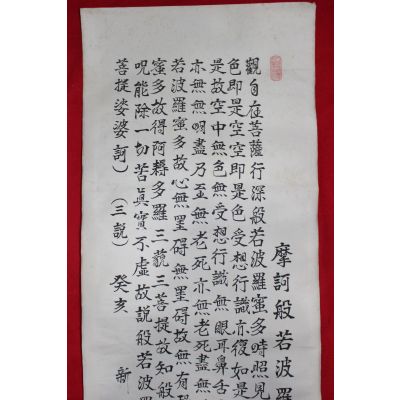 摩訶般若波羅
觀自在菩薩行深般若波羅蜜多時照見
色即是空空即是色受想行識亦復如是
是故空中無色無受想行識無眼耳鼻舌
亦無無明盡乃至無老死亦無老死盡無
若波羅蜜多故心無罣碍無罣碍故無有
蜜多故得阿耨多羅三藐三菩提故知般
呪能除一切苦眞實不虛故説般若波羅
菩提娑婆訶)(三説) 癸亥 新